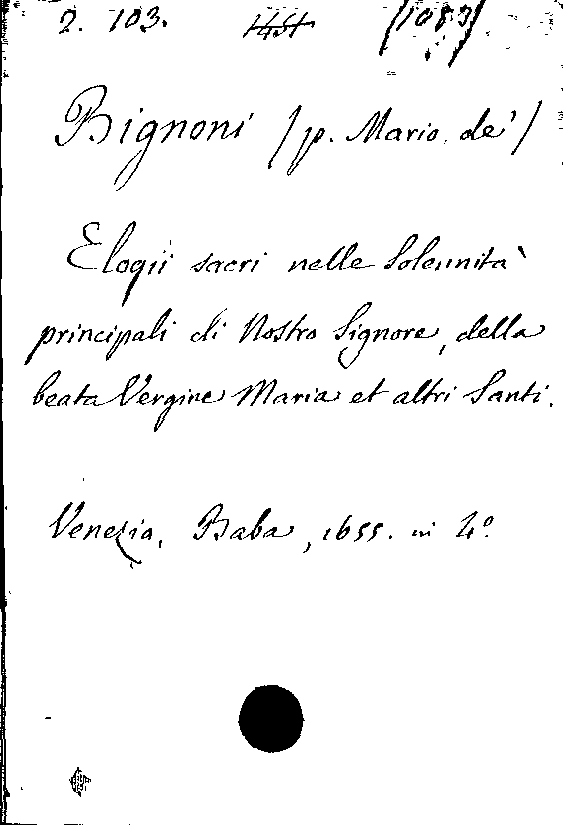 2. 103. (1083)
Bignoni (p. Mario de')
Elogii sacri nelle Solennità
principali di Nostro Signore, della
beata Vergine Maria et altri Santi.
Venezia, Baba, 1655. in 4º